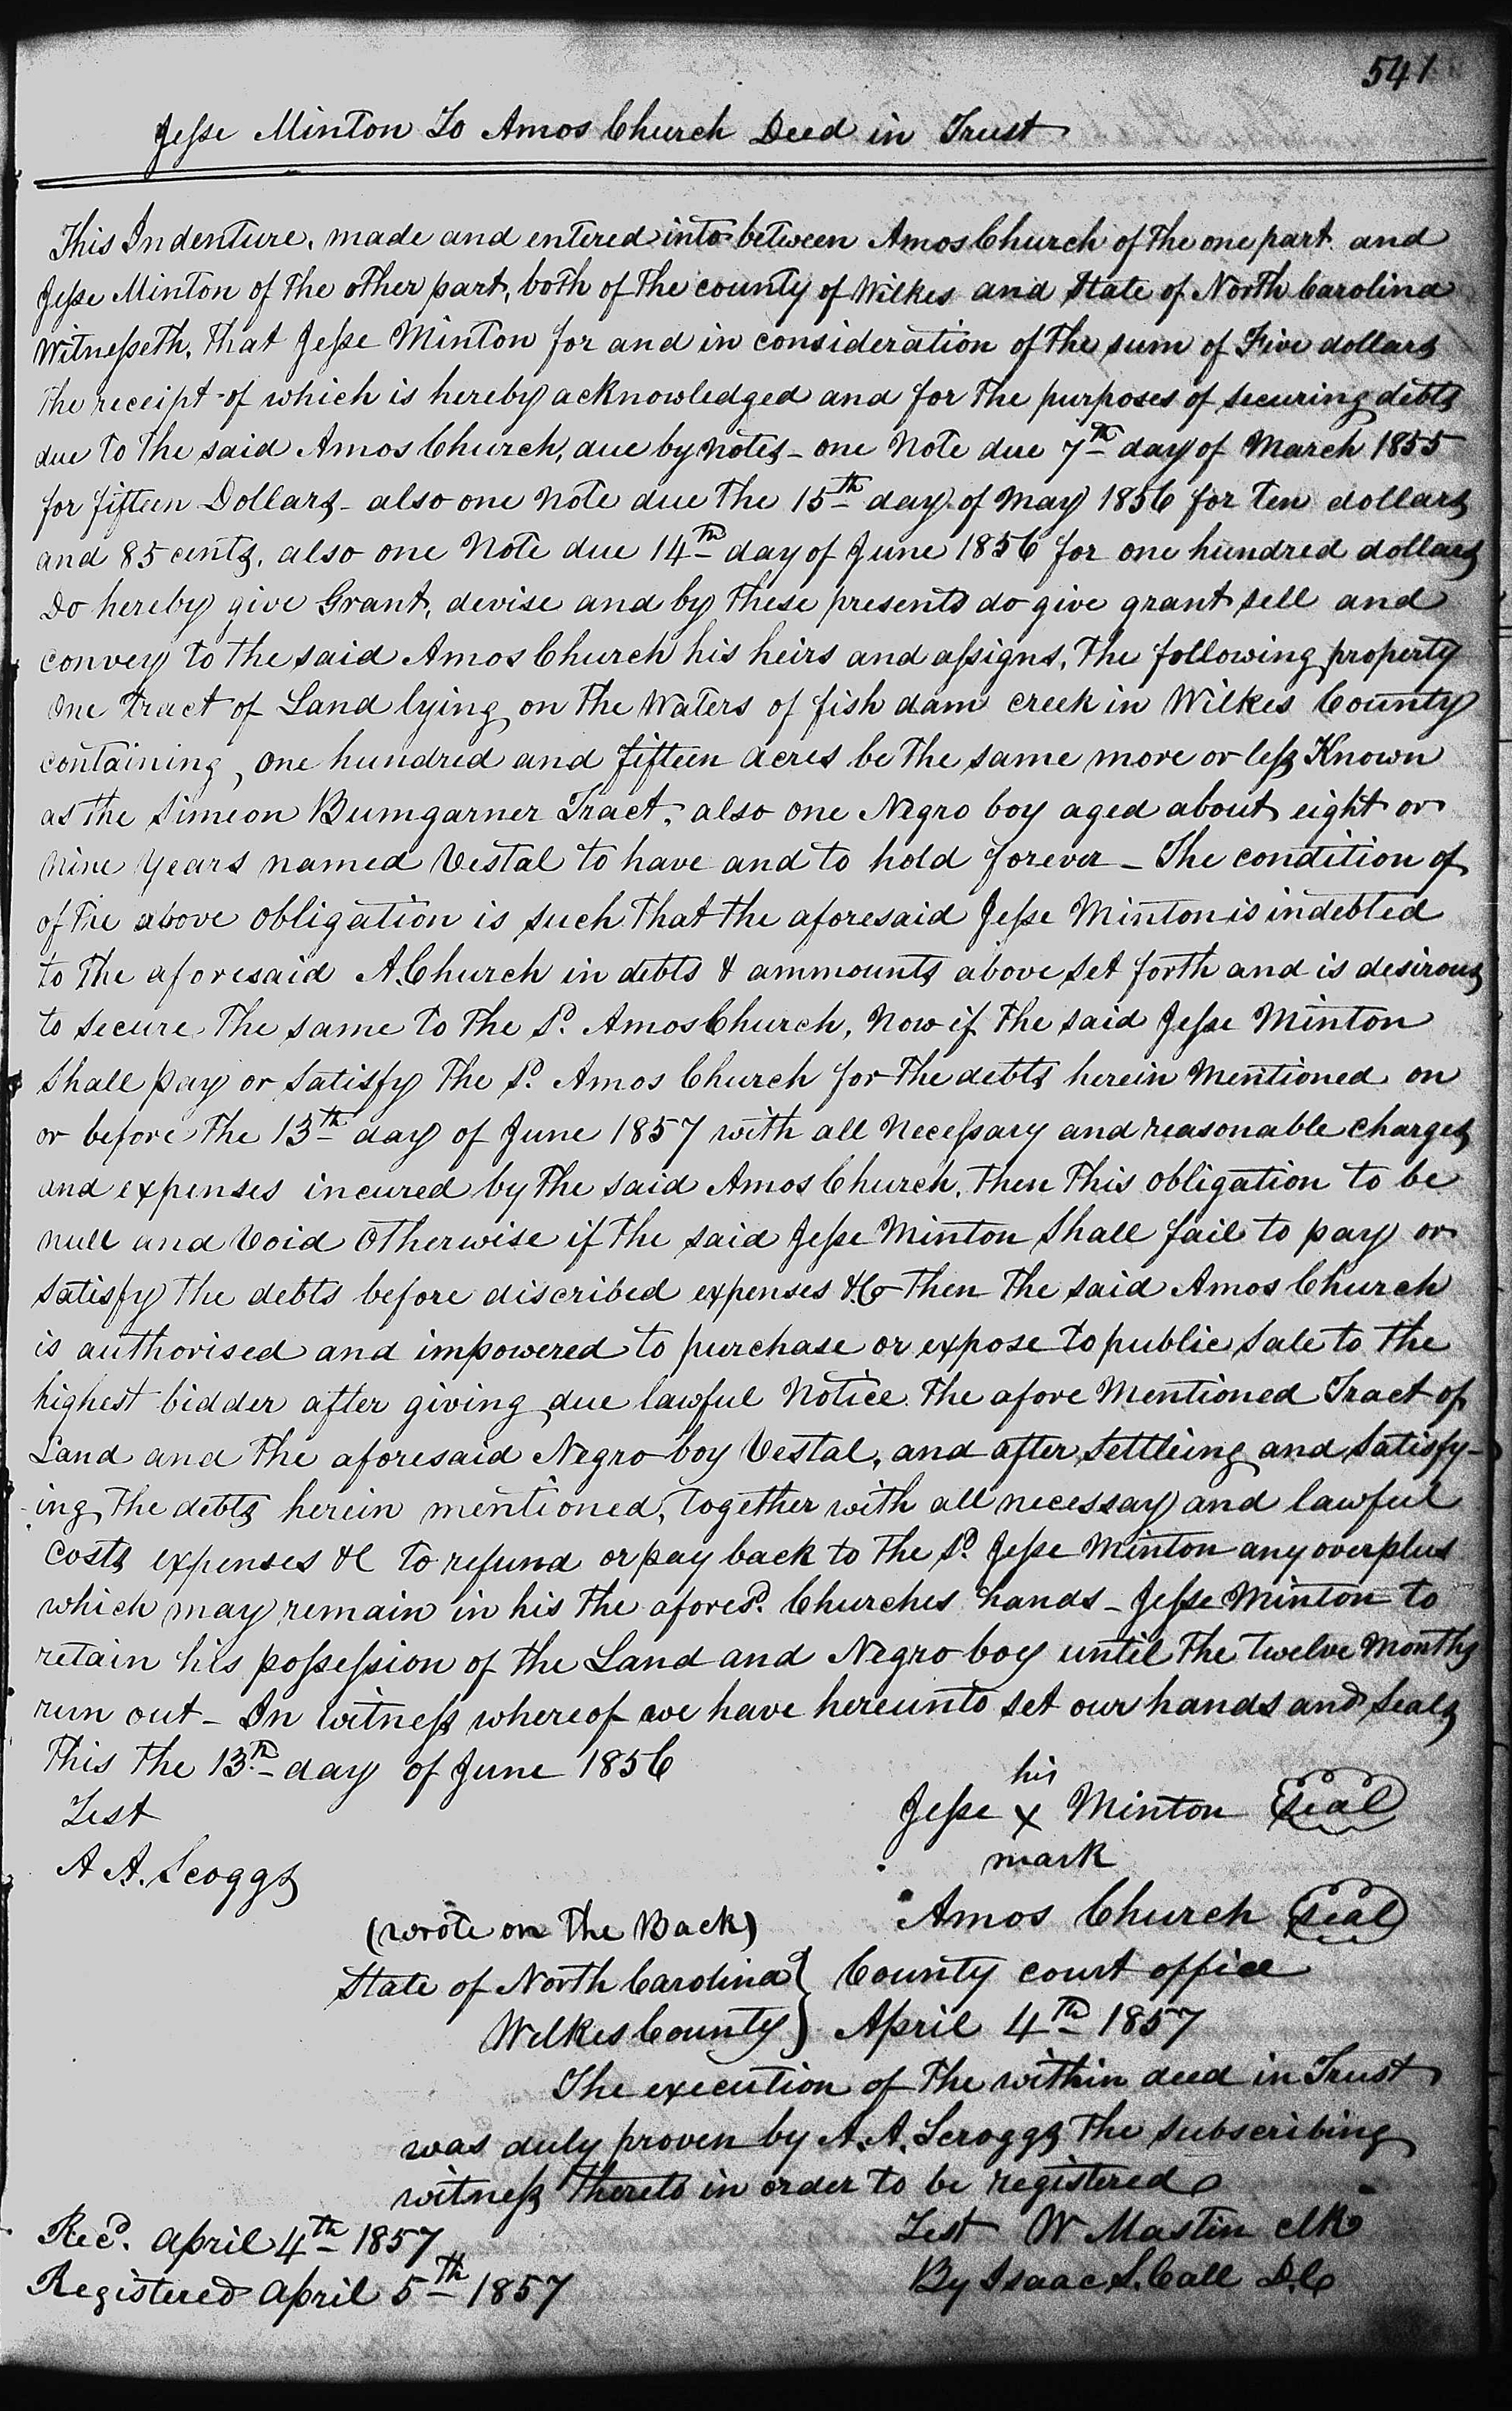 541
Jesse Minton To Amos Church Deed in Trust
This Indenture, made and entered into between Amos Church of the one part and
Jesse Minton of the other part, both of the county of Wilkes and State of North Carolina
Witnesseth, that Jesse Minton for and in consideration of the sum of Five dollars
the receipt of which is hereby acknowledged and for the purposes of securing debts
due to the said Amos Church, due by notes - one Note due 7th day of March 1855
for fifteen Dollars - also one note due the 15th day of May 1856 for ten dollars
and 85 cents, also one Note due 14th day of June 1856 for one hundred dollars
Do hereby give Grant, devise and by these presents do give grant sell and
convey to the said Amos Church his heirs and assigns, the following property
One tract of Land lying on the Waters of fish dam creek in Wilkes County
containing, one hundred and fifteen acres be the same more or less Known
as the Simeon Bumgarner Tract, also one Negro boy aged about eight or
nine years named Vestal to have and to hold forever - The condition of
of the above obligation is such that the aforesaid Jesse Minton is indebted
to the aforesaid A. Church in debts & ammounts above set forth and is desirous
to secure the same to the Sd. Amos Church, Now if the said Jesse Minton
shall pay or satisfy the Sd. Amos Church for the debts herein Mentioned on
or before the 13th day of June 1857 with all necessary and reasonable charges
and expenses incured by the said Amos Church, then this obligation to be
null and void otherwise if the said Jesse Minton shall fail to pay or
satisfy the debts before discribed expenses &C then the said Amos Church
is authorised and impowered to purchase or expose to public sale to the
highest bidder after giving due lawful Notice the afore Mentioned Tract of
Land and the aforesaid Negro boy Vestal, and after settleing and satisfy-
-ing the debts herein mentioned, together with all necessay and lawful
costs expenses &C to refund or pay back to the Sd. Jesse Minton any overplus
which may remain in his the aforesd. Churches hands - Jesse Minton to
retain his possession of the Land and Negro boy until the twelve Months
run out - In witness whereof we have hereunto set our hands and seals
this the 13th day of June 1856
his
Test Jesse x Minton Seal
A A. Scoggs mark
Amos Church Seal
(wrote on the Back)
State of North Carolina } County court office
Wilkes County } April 4th 1857
The execution of the within deed in Trust
was duly proven by A. A. Scroggs the subscribing
witness thereto in order to be registered
Recd. April 4th 1857 Test W Mastin clk
Registered April 5th 1857 By Isaac S. Call D.C